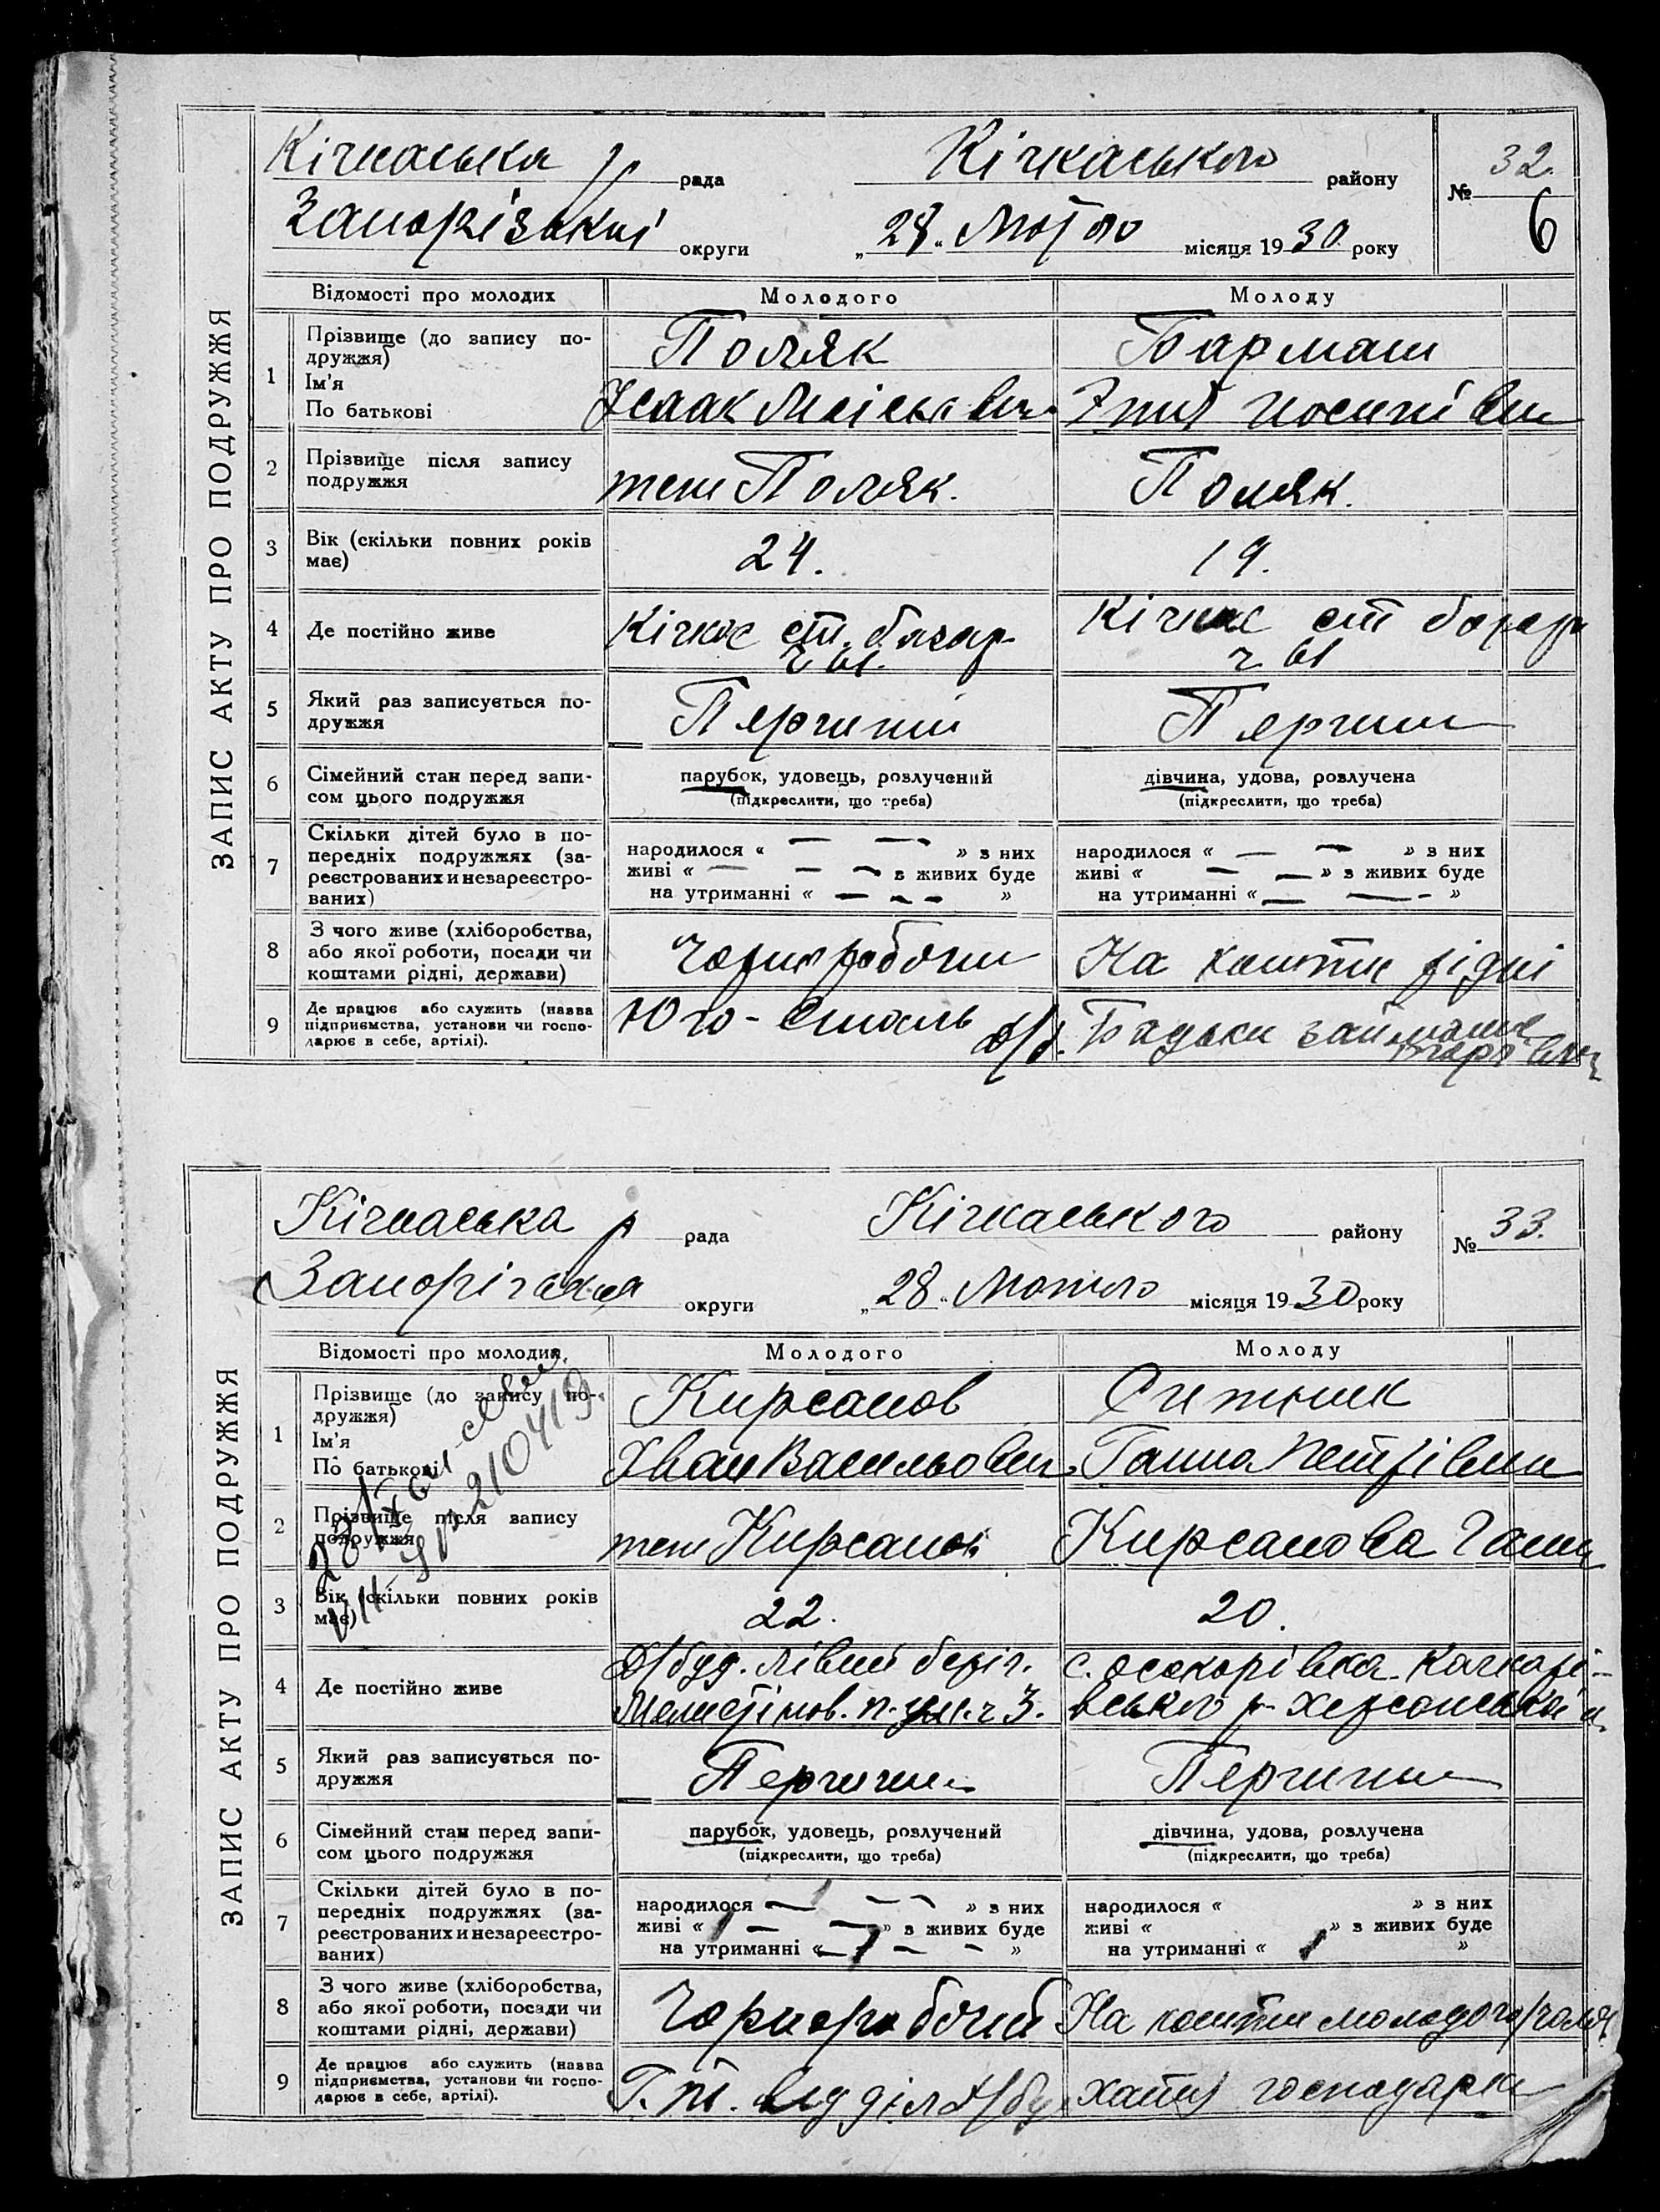 ЗАПИС АКТУ ПРО ПОДРУЖЖЯ
Кічкаська р рада Кічкаського району № 32.
Запорізької округи „28“ Лютого місяця 1930 року 6
Відомості про молодих Молодого Молоду
1 Прізвище (до запису по-
дружжя)
Ім'я
По батькові
Поляк
Ісаак
Йосипівна
2 Прізвище після запису
подружжя
теж Поляк. Поляк.
3 Вік (скільки повних років
має)
24. 19.
4 Де постійно живе
Кічкас ст. базар
ч 61.
Кічкас ст базар
ч 61
5 Який раз записується по-
дружжя
Перший Перший
6 Сімейний стан перед запи-
сом цього подружжя
парубок, удовець, розлучений
(підкреслити, що треба)
дівчина, удова, розлучена
(підкреслити, що треба)
7 Скільки дітей було в по-
передніх подружжях (за-
реєстрованих и незареєстро-
ваних)
народилося « — — » з них
живі « — — — з живих буде
на утриманні « — — — »
народилося « — — » з них
живі « — — » з живих буде
на утриманні « — — »
8 З чого живе (хліборобства,
або якої роботи, посади чи
коштами рідні, держави)
Чорноробочий На кошти рідні
9 Де працює або служить (назва
підприємства, установи чи госпо-
дарює в себе, артілі).
Юго-Сталь
Батьки
ЗАПИС АКТУ ПРО ПОДРУЖЖЯ
Кічкаська р рада Кічкаського району № 33.
Запорізька округи „28“ Лютого місяця 1930 року
Відомості про молодих Молодого Молоду
1 Прізвище (до запису по-
дружжя)
Ім'я
По батькові
Кирсанов Ситник
Іван Васильович Ганна Петрівна
210419
2 Прізвище після запису
подружжя
теж Кирсанов Кирсанова Ганна
3 Вік (скільки повних років
має)
22. 20.
4 Де постійно живе
Д/буд. лівий беріг.
ч 3.
с. Осокорівка Качкарі-
вського р. Херсонської о.
5 Який раз записується по-
дружжя
Перший Перший
6 Сімейний стан перед запи-
сом цього подружжя
парубок, удовець, розлучений
(підкреслити, що треба)
дівчина, удова, розлучена
(підкреслити, що треба)
7 Скільки дітей було в по-
передніх подружжях (за-
реєстрованих и незареєстро-
ваних)
народилося — — » з них
живі « — — » з живих буде
на утриманні « — — — »
народилося « » з них
живі « » з живих буде
на утриманні « »
8 З чого живе (хліборобства,
або якої роботи, посади чи
коштами рідні, держави)
Чорноробочий На кошти молодого
9 Де працює або служить (назва
підприємства, установи чи госпо-
дарює в себе, артілі).
відділ Д/бу хатня господарка